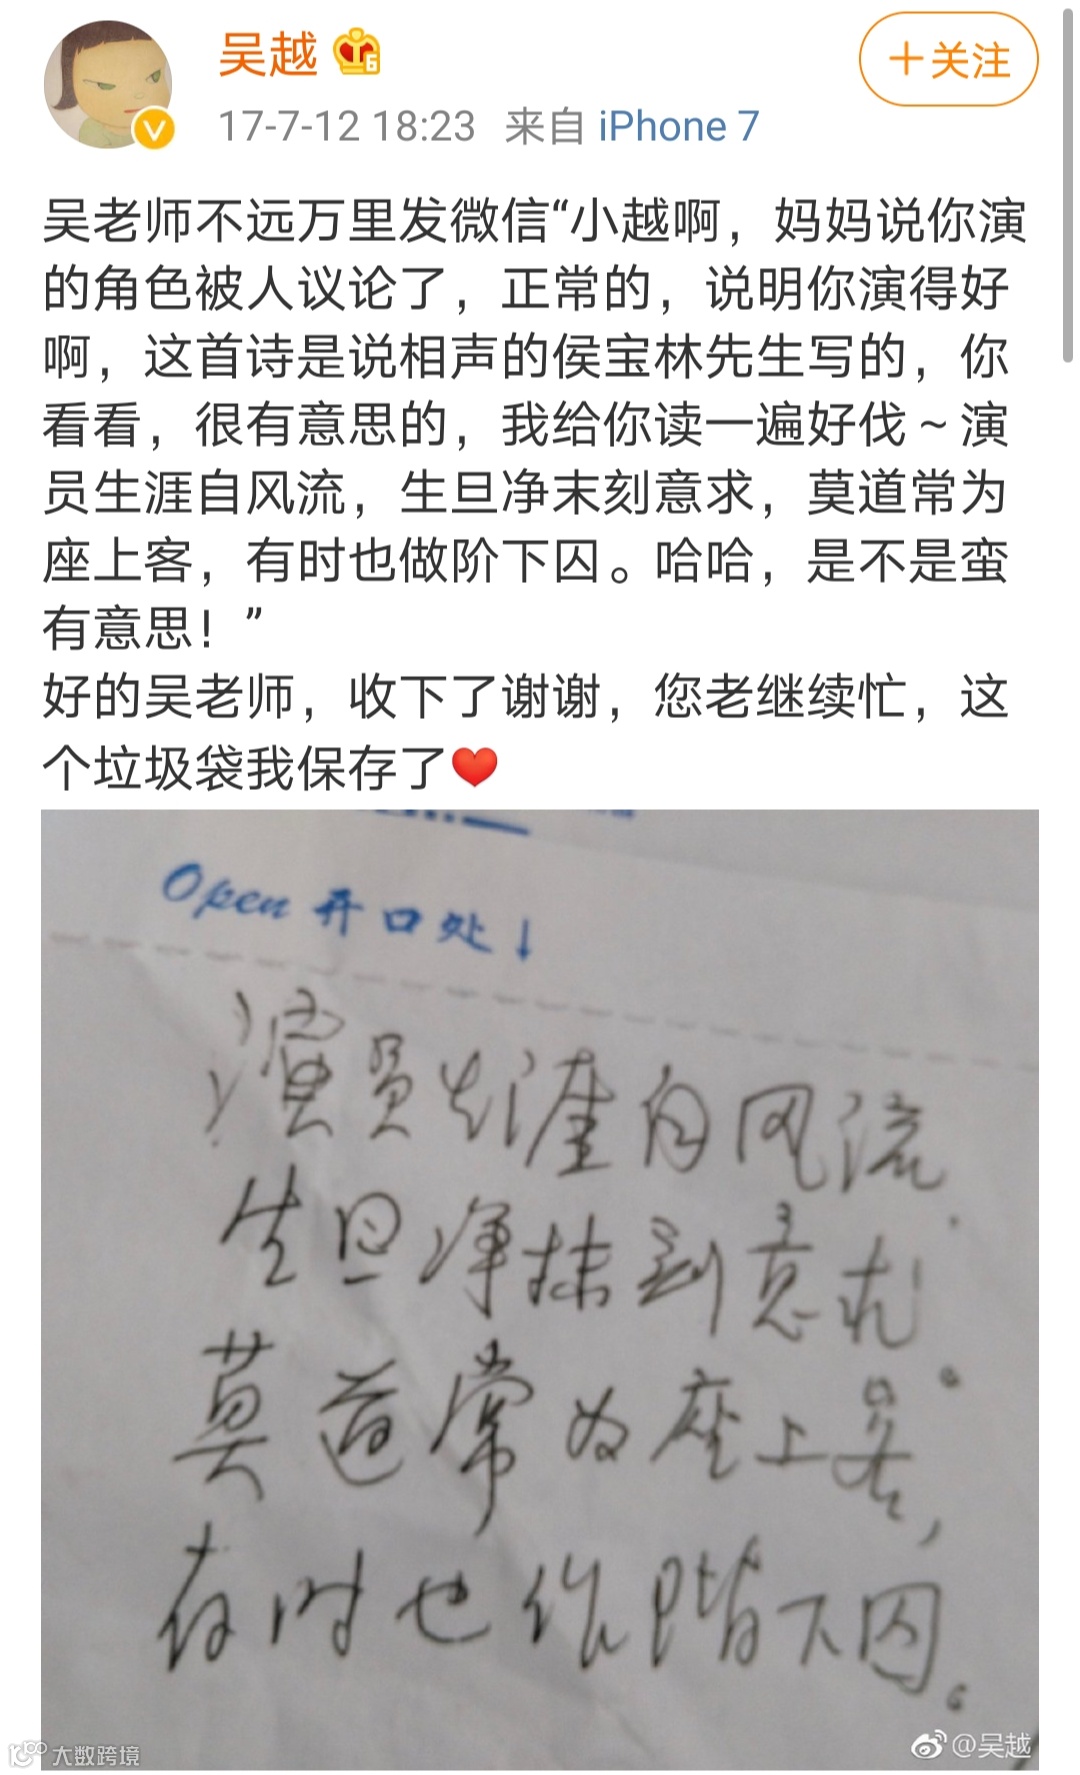 吴越
6
+关注
17-7-12 18:23 来自 iPhone 7
吴老师不远万里发微信“小越啊，妈妈说你演
的角色被人议论了，正常的，说明你演得好
啊，这首诗是说相声的侯宝林先生写的，你
看看，很有意思的，我给你读一遍好伐～演
员生涯自风流，生旦净末刻意求，莫道常为
座上客，有时也做阶下囚。哈哈，是不是蛮
有意思！”
好的吴老师，收下了谢谢，您老继续忙，这
个垃圾袋我保存了❤
Open 开口处↓
演员生涯自风流.
生旦净抹刻意求。
莫道常为座上客，
有时也作阶下囚。
@吴越
大数跨境